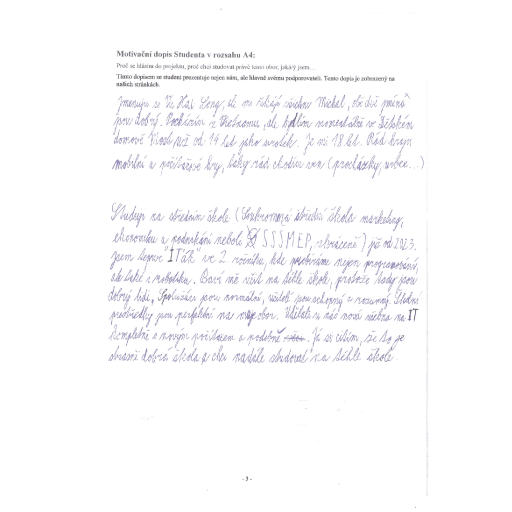 Motivační dopis Studenta v rozsahu A4:
Proč se hlásím do projektu, proč chci studovat právě tento obor, jaká/ý jsem…
Tímto dopisem se student prezentuje nejen nám, ale hlavně svému podporovateli. Tento dopis je zobrazený na
našich stránkách.
Jmenuji se Vu Hai Long, ale mi říkají všichni Michal, obě dvě jména
jsou dobrý. Pocházím z Vietnamu, ale bydlím momentálně v Dětském
domově už od 14 let jako sirotek. Je mi 18 let. Rád hraju
mobilní a počítačové hry, taky rád chodím ven (procházky, …)
Studuju na střední škole (Soukromá střední škola marketingu,
ekonomiky a podnikání neboli SSŠMEP, zkráceně) již od 2023.
jsem teprve "ITák" ve 2 ročníku, kde probíráme nejen programování,
ale také i robotika. Baví mě učit na téhle škole, protože tady jsou
dobrý lidi, Spolužáci jsou normální, učitelé jsou schopný a rozumný. Školní
prostředky jsou perfektní na můj obor. Udělali u nás nová učebna na IT
kompletně s novým počítačem a podobně. Já se cítím, že to je
obrovsky dobrá škola a chci nadále studovat na téhle škole.
- 3 -